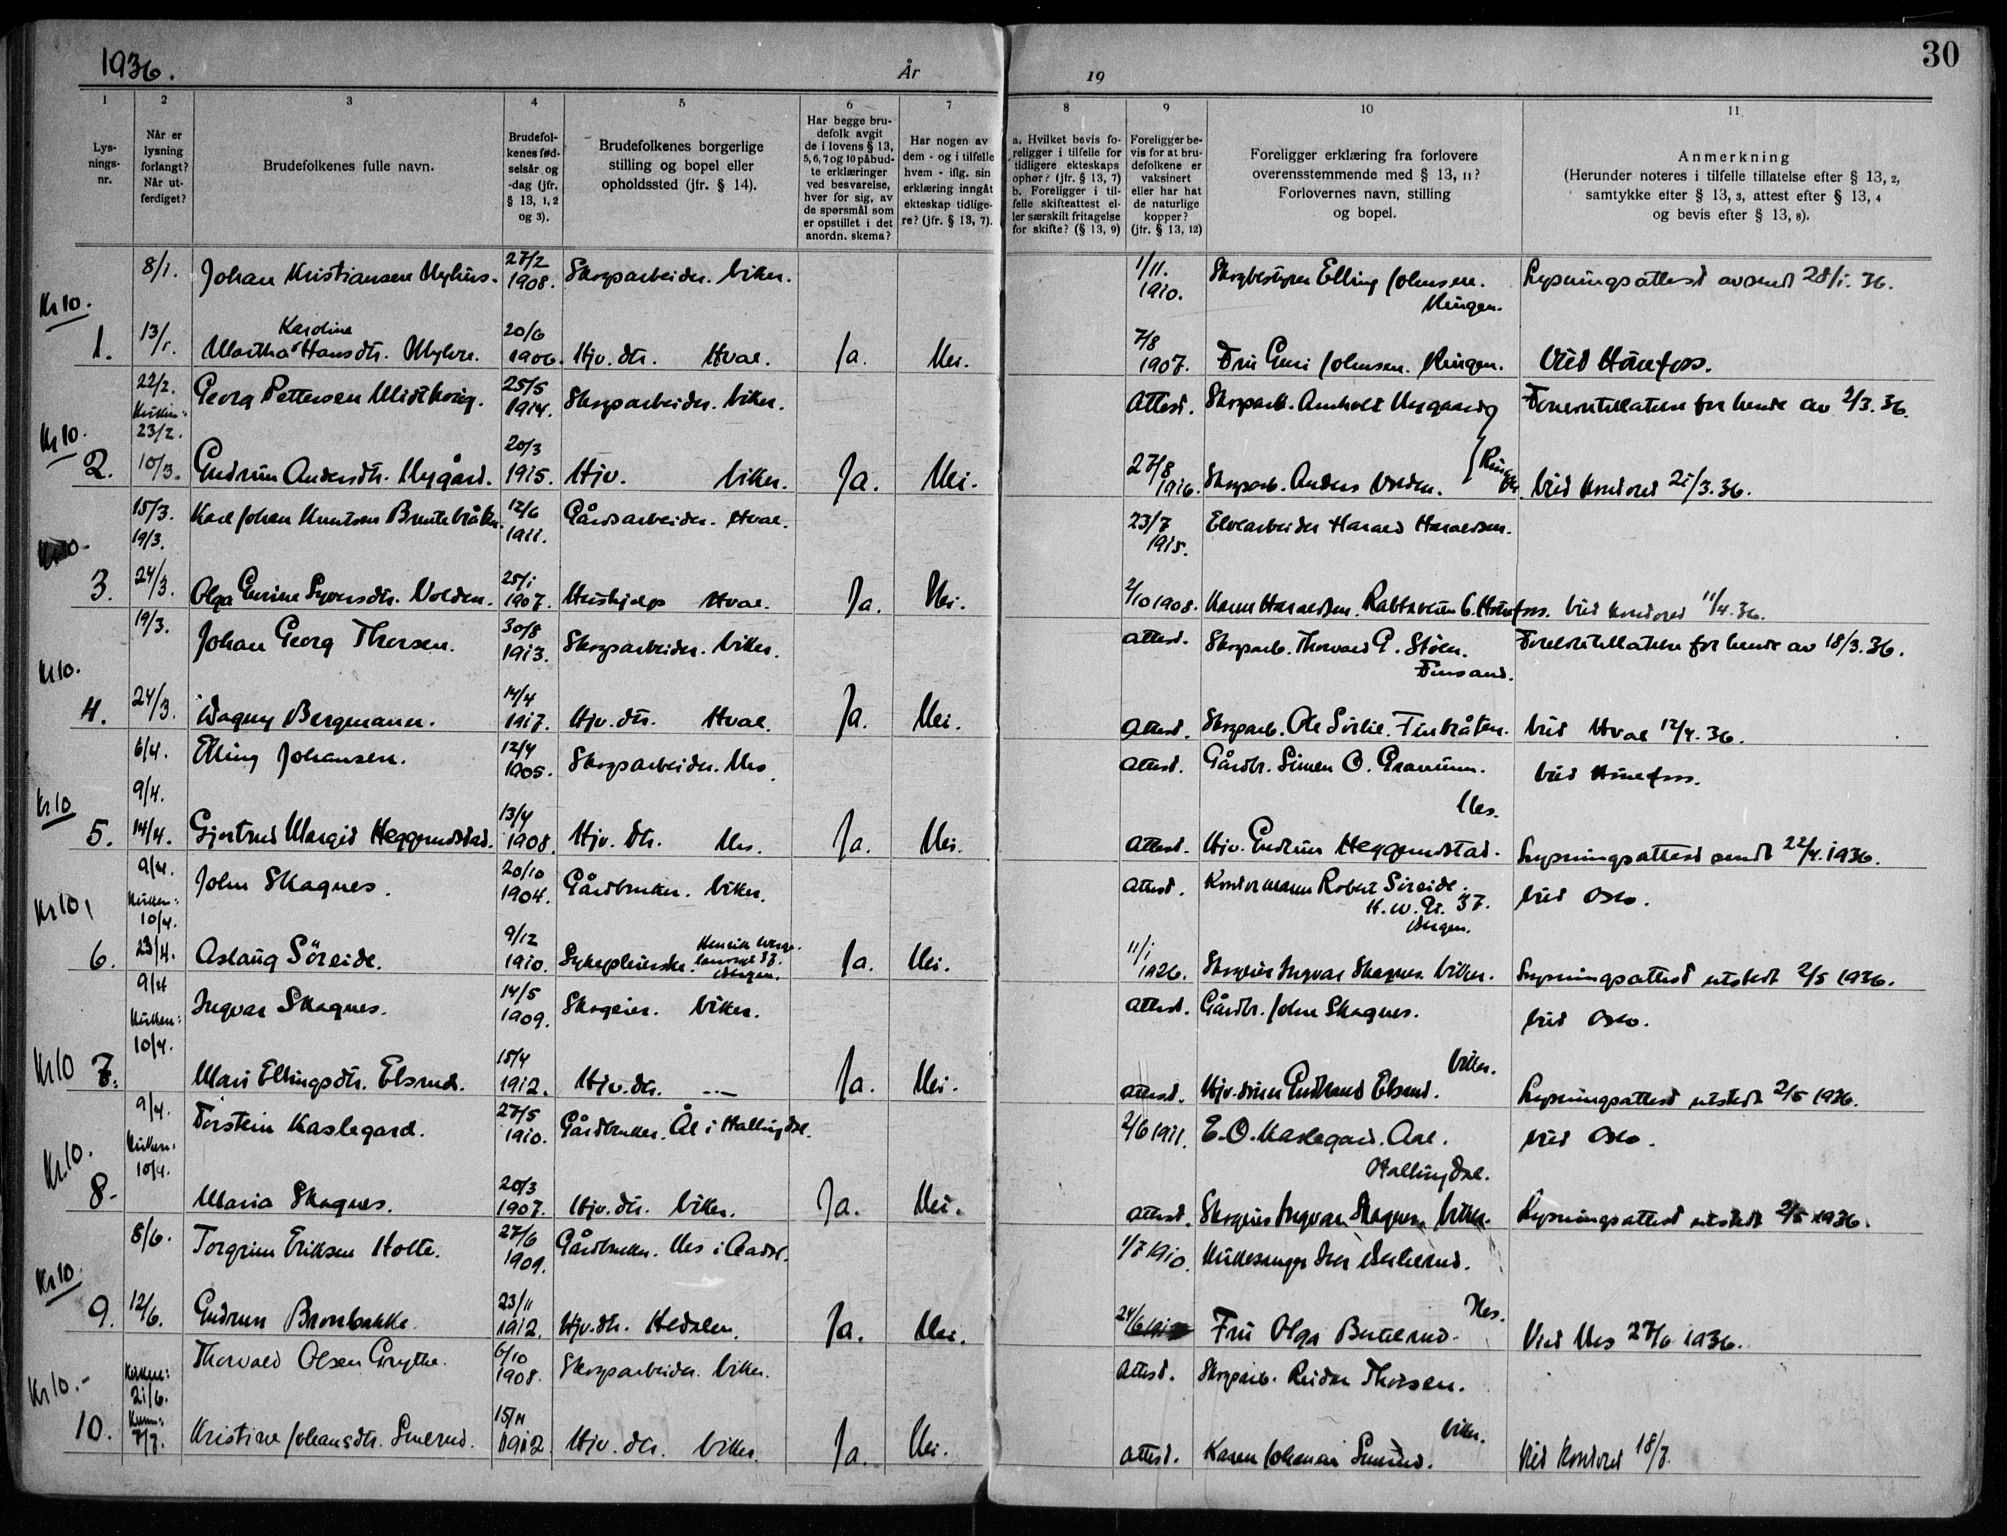 1936.
År
19
30
1
2
3
4
5
6
7
8
9
10
11
Lys-
nings-
nr.
Når er
lysning
forlangt?
Når ut-
ferdiget?
Brudefolkenes fulle navn.
Brudefol-
kenes fød-
selsår og
-dag (jfr.
§ 13, 1, 2
og 3).
Brudefolkenes borgerlige
stilling og bopel eller
opholdssted (jfr. § 14).
Har begge bru-
defolk avgit
de i lovens § 13,
5, 6, 7 og 10 påbud-
te erklæringer
ved besvarelse,
hver for sig, av
de spørsmål som
er opstillet i det
anordn. skema?
Har nogen av
dem - og i tilfelle
hvem - iflg. sin
erklæring inngåt
ekteskap tidlige-
re? (jfr. § 13, 7).
a. Hvilket bevis fo-
religger i tilfelle for
tidligere ekteskaps
ophør? (jfr. § 13, 7)
b. Foreligger i til-
felle skifteattest el-
ler særskilt fritagelse
for skifte? (§ 13, 9)
Foreligger be-
vis for at bru-
defolkene er
vaksinert
eller har hat
de naturlige
kopper?
(jfr. § 13, 12)
Foreligger erklæring fra forlovere
overensstemmende med § 13, 11?
Forlovernes navn, stilling
og bopel.
Anmerkning
(Herunder noteres i tilfelle tillatelse efter § 13, 2,
samtykke efter § 13, 3, attest efter § 13, 4
og bevis efter § 13, 8).
8/1. Johan Kristiansen Myhre. 27/2 1908. Skogsarbeider. Viker. 1/11. 1910. Elling Johnsen. Ringen. Lysningsattest avsendt 28/1. 36.
Kr 10.
1. 13/1. Martha Karoline Hansdtr. Myhre. 20/6 1906. Hjv. dtr. Hval. Ja. Nei. 7/8 1907. Fru Guri Johnsen. Ringen. Viet Hönefoss.
22/2. Kirken: 23/2. Georg Pettersen Midthaug. 25/5 1914. Skogsarbeider. Viker. Attest. Skogsarb. Nygaard Foreldretillatelse for hende av 2/3. 36.
Kr 10.
2. 10/3. Gudrun Andersdtr. Nygård. 20/3 1915. Hjv. Viker. Ja. Nei. 27/8 1916. Skogsarb. Anders Volden. Viet kontoret 21/3. 36.
15/3. 19/3. Karl Johan Knutsen Brutebråten. 12/6 1911. Gårdsarbeider. Hval. 23/7 1915. Elvearbeider Harald Haraldsen.
Kr 10.-
3. 24/3. Olga Gurine Syversdtr. Volden. 25/1 1907. Hushjelp Hval. Ja. Nei. 2/10 1908. Haraldsen. 6. Hönefoss. Viet kontoret 11/4. 36.
19/3. Johan Georg Thorsen. 30/8 1913. Skogsarbeider. Viker. Attest. Skogsarb. Thorvald G. Stölen. Finsand. Foreldretillatelse for hende av 18/3. 36.
Kr 10.
4. 24/3. Dagny Bergmann. 14/4 1917. Hjv. dtr. Hval. Ja. Nei. Attest. Skogsarb. Ole Sörlie. Finbråten. Viet Hval 12/4. 36.
6/4. 9/4. Elling Johansen. 12/4 1905. Skogsarbeider. Nes. Attest. Gårdbr. Simen O. Granum. Nes. Viet Hönefoss.
Kr 10
5. 14/4. Gjertrud Margit Heggundstad. 13/4 1908. Hjv. dtr. Nes. Ja. Nei. Attest. Hjv. Gudrun Heggundstad. Lysningsattest sendt 22/4. 1936.
9/4. Kirken: 10/4. John Skagnes. 20/10 1904. Gårdbruker. Viker. Attest. Kontormann Robert Söreide. H. W. Gt. 37. Bergen. Viet Oslo.
Kr 10,
6. 23/4. Aslaug Söreide. 9/12 1910. Sykepleierske. Bergen. Ja. Nei. 11/1 1926. Skogeier Ingvar Skagnes. Viker. Lysningsattest utstedt 2/5 1936.
9/4 Kirken: 10/4. Ingvar Skagnes. 14/5 1909. Skogeier. Viker. Attest. Gårdbr. John Skagnes. Viker. Viet Oslo.
Kr 10
7. Mari Ellingsdtr. Elsrud. 15/4 1912. Hjv. dtr. -"- Ja. Nei. Attest. Elsrud. Lysningsattest utstedt 2/5 1936.
9/4. Kirken: 10/4. Torstein Kaslegard. 27/5 1910. Gårdbruker. Ål i Hallingdal. 2/6 1911. E. O. Kaslegard. Aal. Hallingdal. Viet Oslo.
Kr 10.
8. Maria Skagnes. 20/3 1907. Hjv. dtr. Viker. Ja. Nei. Attest. Skogeier Ingvar Skagnes. Viker. Lysningsattest utstedt 2/5 1936.
8/6. Torgrim Eriksen Holte. 27/6 1909. Gårdbruker. Nes i Aadal. 1/7 1910. Kirkesanger Iver Nes.
Kr 10.
9. 12/6. Gudrun Bronbakke. 23/11 1912. Hjv. dtr. Hedalen. Ja. Nei. 24/6 Fru Olga Viet Nes 27/6 1936.
Kirken: 21/6. Thorvald Olsen Grythe. 6/10 1908. Skogsarbeider. Viker. Attest. Skogsarb. Reidar Thorsen. Viker.
Kr 10.-
10. 7/7. Kristine Johansdtr. Smerud. 15/11 1912. Hjv. dtr. Viker. Ja. Nei. Attest. Karen Smerud. Viet kontoret 18/7.